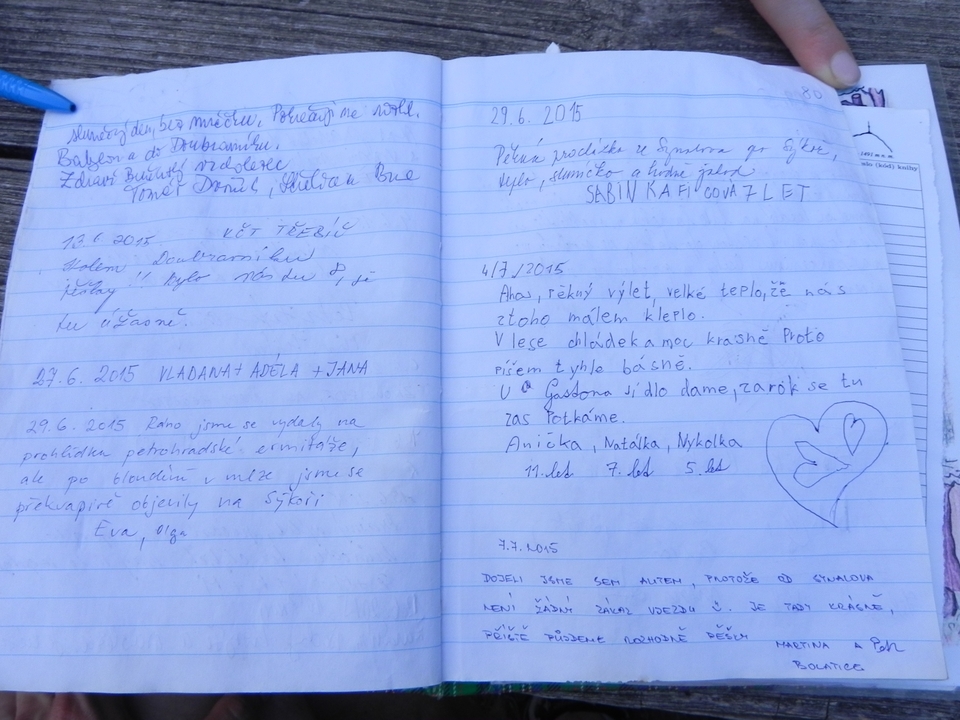 slunečný den, bez mráčku. Pokračuji na rozhl.
Babylon a do Doubravníku.
Zdraví
Tomáš
13.6 2015. KČT TŘEBÍČ
Kolem Doubravníku
!! Bylo nás tu 8, je
tu úžasně.
27.6. 2015 VLADANA + ADÉLA + JANA
29.6. 2015 Ráno jsme se vydaly na
prohlídku petrohradské ermitáže,
ale po bloudění v mlze jsme se
překvapivě objevily na Sýkoři
Eva, Olga
80
29.6. 2015
Pěkná procházka ze Synalova do Sýkoř,
bylo, sluníčko a hodně jahod
SABINKA FICOVA 7 LET
4/7/2015
Ahoj, pěkný výlet, velké teplo, že nás
ztoho málem kleplo.
V lese chládek a moc krasně Proto
píšem tyhle básně.
U Gastona jídlo dame, zarok se tu
zas Potkáme.
Anička, Natálka, Nykolka
11.let 7. let 5. let
7.7.2015
DOJELI JSME SEM AUTEM, PROTOŽE OD SYNALOVA
NENÍ ŽÁDNÝ ZÁKAZ VJEZDU. JE TADY KRÁSNĚ,
PŘÍŠTĚ PŮJDEME ROZHODNĚ PĚŠKY
MARTINA A Petr
BOLATICE